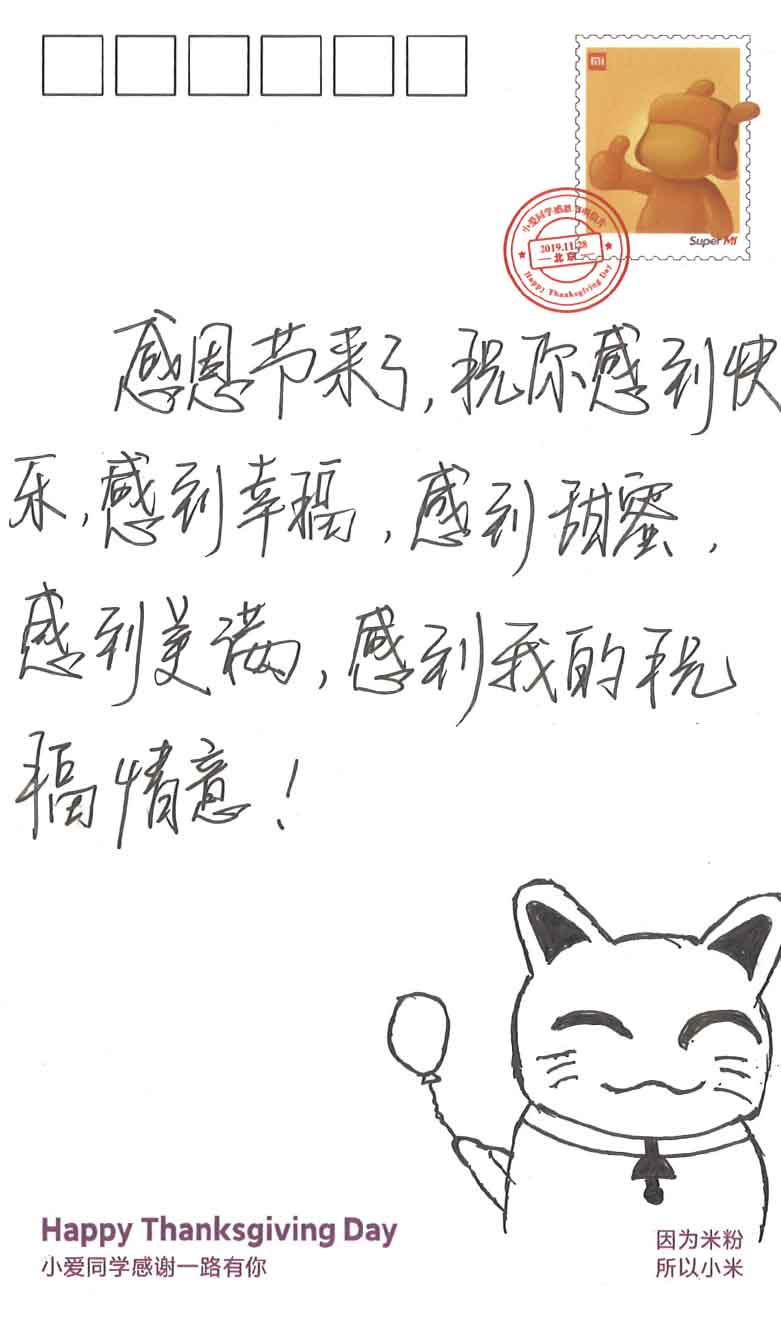 mi
Super Mi
2019.11.28
北京
Happy Thanksgiving Day
感恩节来了,祝你感到快
乐,感到幸福,感到甜蜜,
感到美满,感到我的祝
福情意!
Happy Thanksgiving Day
小爱同学感谢一路有你
因为米粉
所以小米